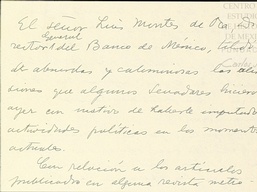 CENTRO
ESTUDI
DE MEXI
El señor Luis Montes de Oca, Di-
rector General del Banco de México,
de absurdas y calumniosas las alu-
siones que algunos Senadores hicieron
ayer con motivo de haberle imputado
actividades políticas en los momentos
actuales.
Con relación a los artículos
publicados en alguna revista